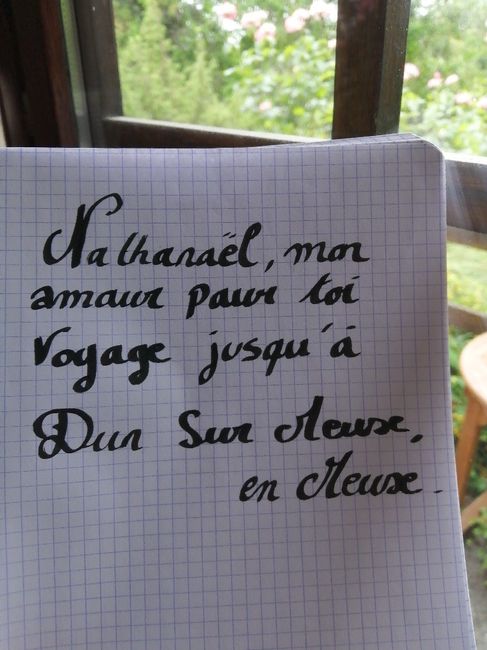 Nathanaël, mon
amour pour toi
Voyage jusqu'à
Dun Sur Meuse,
en Meuse.